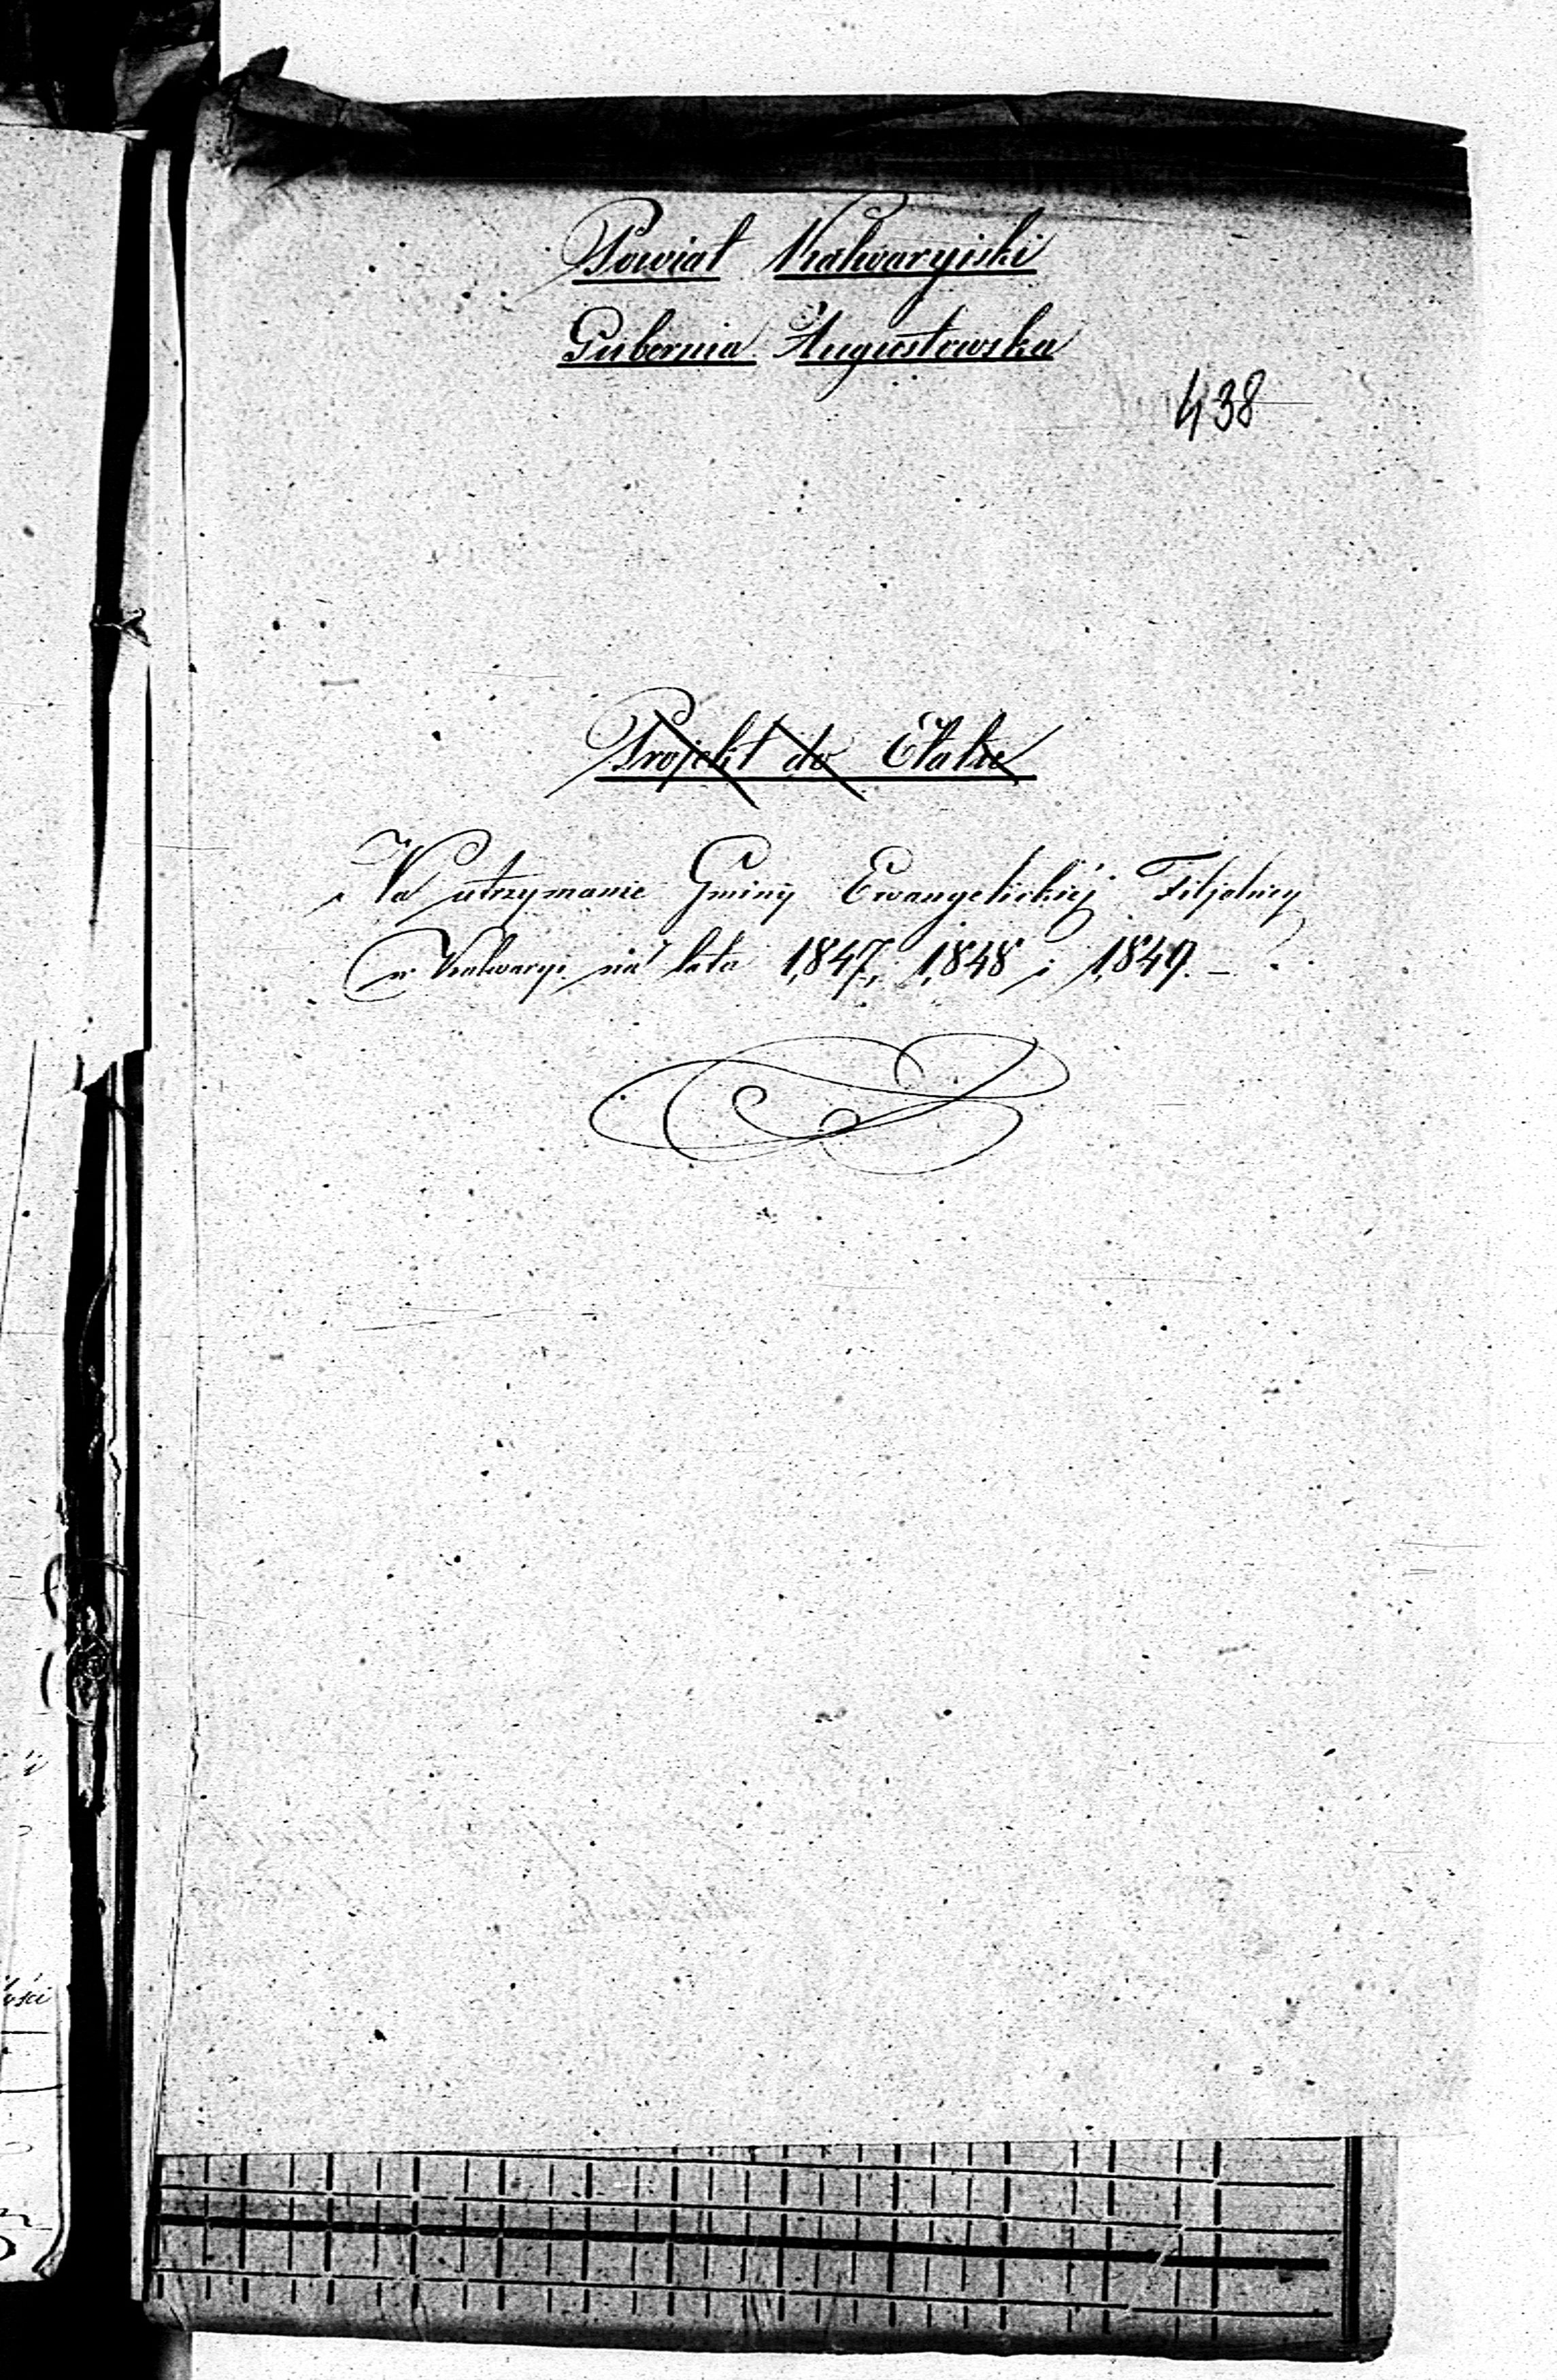 Powiat Kalwaryiski
Gubernia Augustowska
438
Projekt do Etatu
Na utrzymanie Gminy Ewangelickiéj Filjalnéy
w Kalwaryi na lata 1847, 1848 i 1849. –
ości